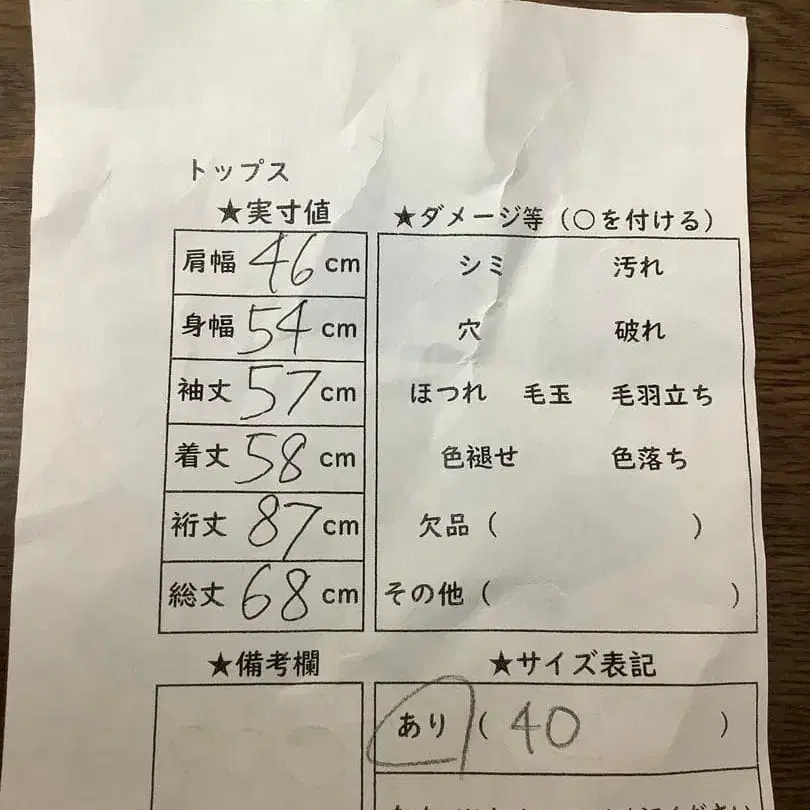 トップス
★実寸値
肩幅 46 cm
身幅 54 cm
袖丈 57 cm
着丈 58 cm
裄丈 87 cm
総丈 68 cm
★ダメージ等（○を付ける）
シミ 汚れ
穴 破れ
ほつれ 毛玉 毛羽立ち
色褪せ 色落ち
欠品（ ）
その他（ ）
★備考欄
★サイズ表記
あり（ 40 ）